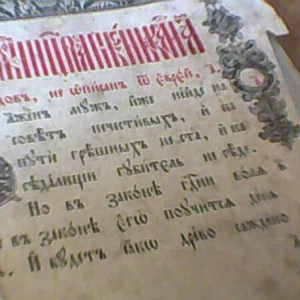 не ѡ҆пи́санъ ѿ є҆врє́й, а҃.
аже́нъ мꙋ́жъ, и҆́же не и́де на
совѣ́тъ нечести́выхъ, и҆ на
пꙋтѝ грѣ́шныхъ не ста̀, и҆ на
сѣда́лищи гꙋби́тель не сѣ́де.
Но въ зако́нѣ гдⷭ҇ни во́лѧ
въ зако́нѣ є҆гѡ̀ поꙋчи́тсѧ де́нь
И҆ бꙋ́детъ ꙗ҆́кѡ дре́во саждено̀